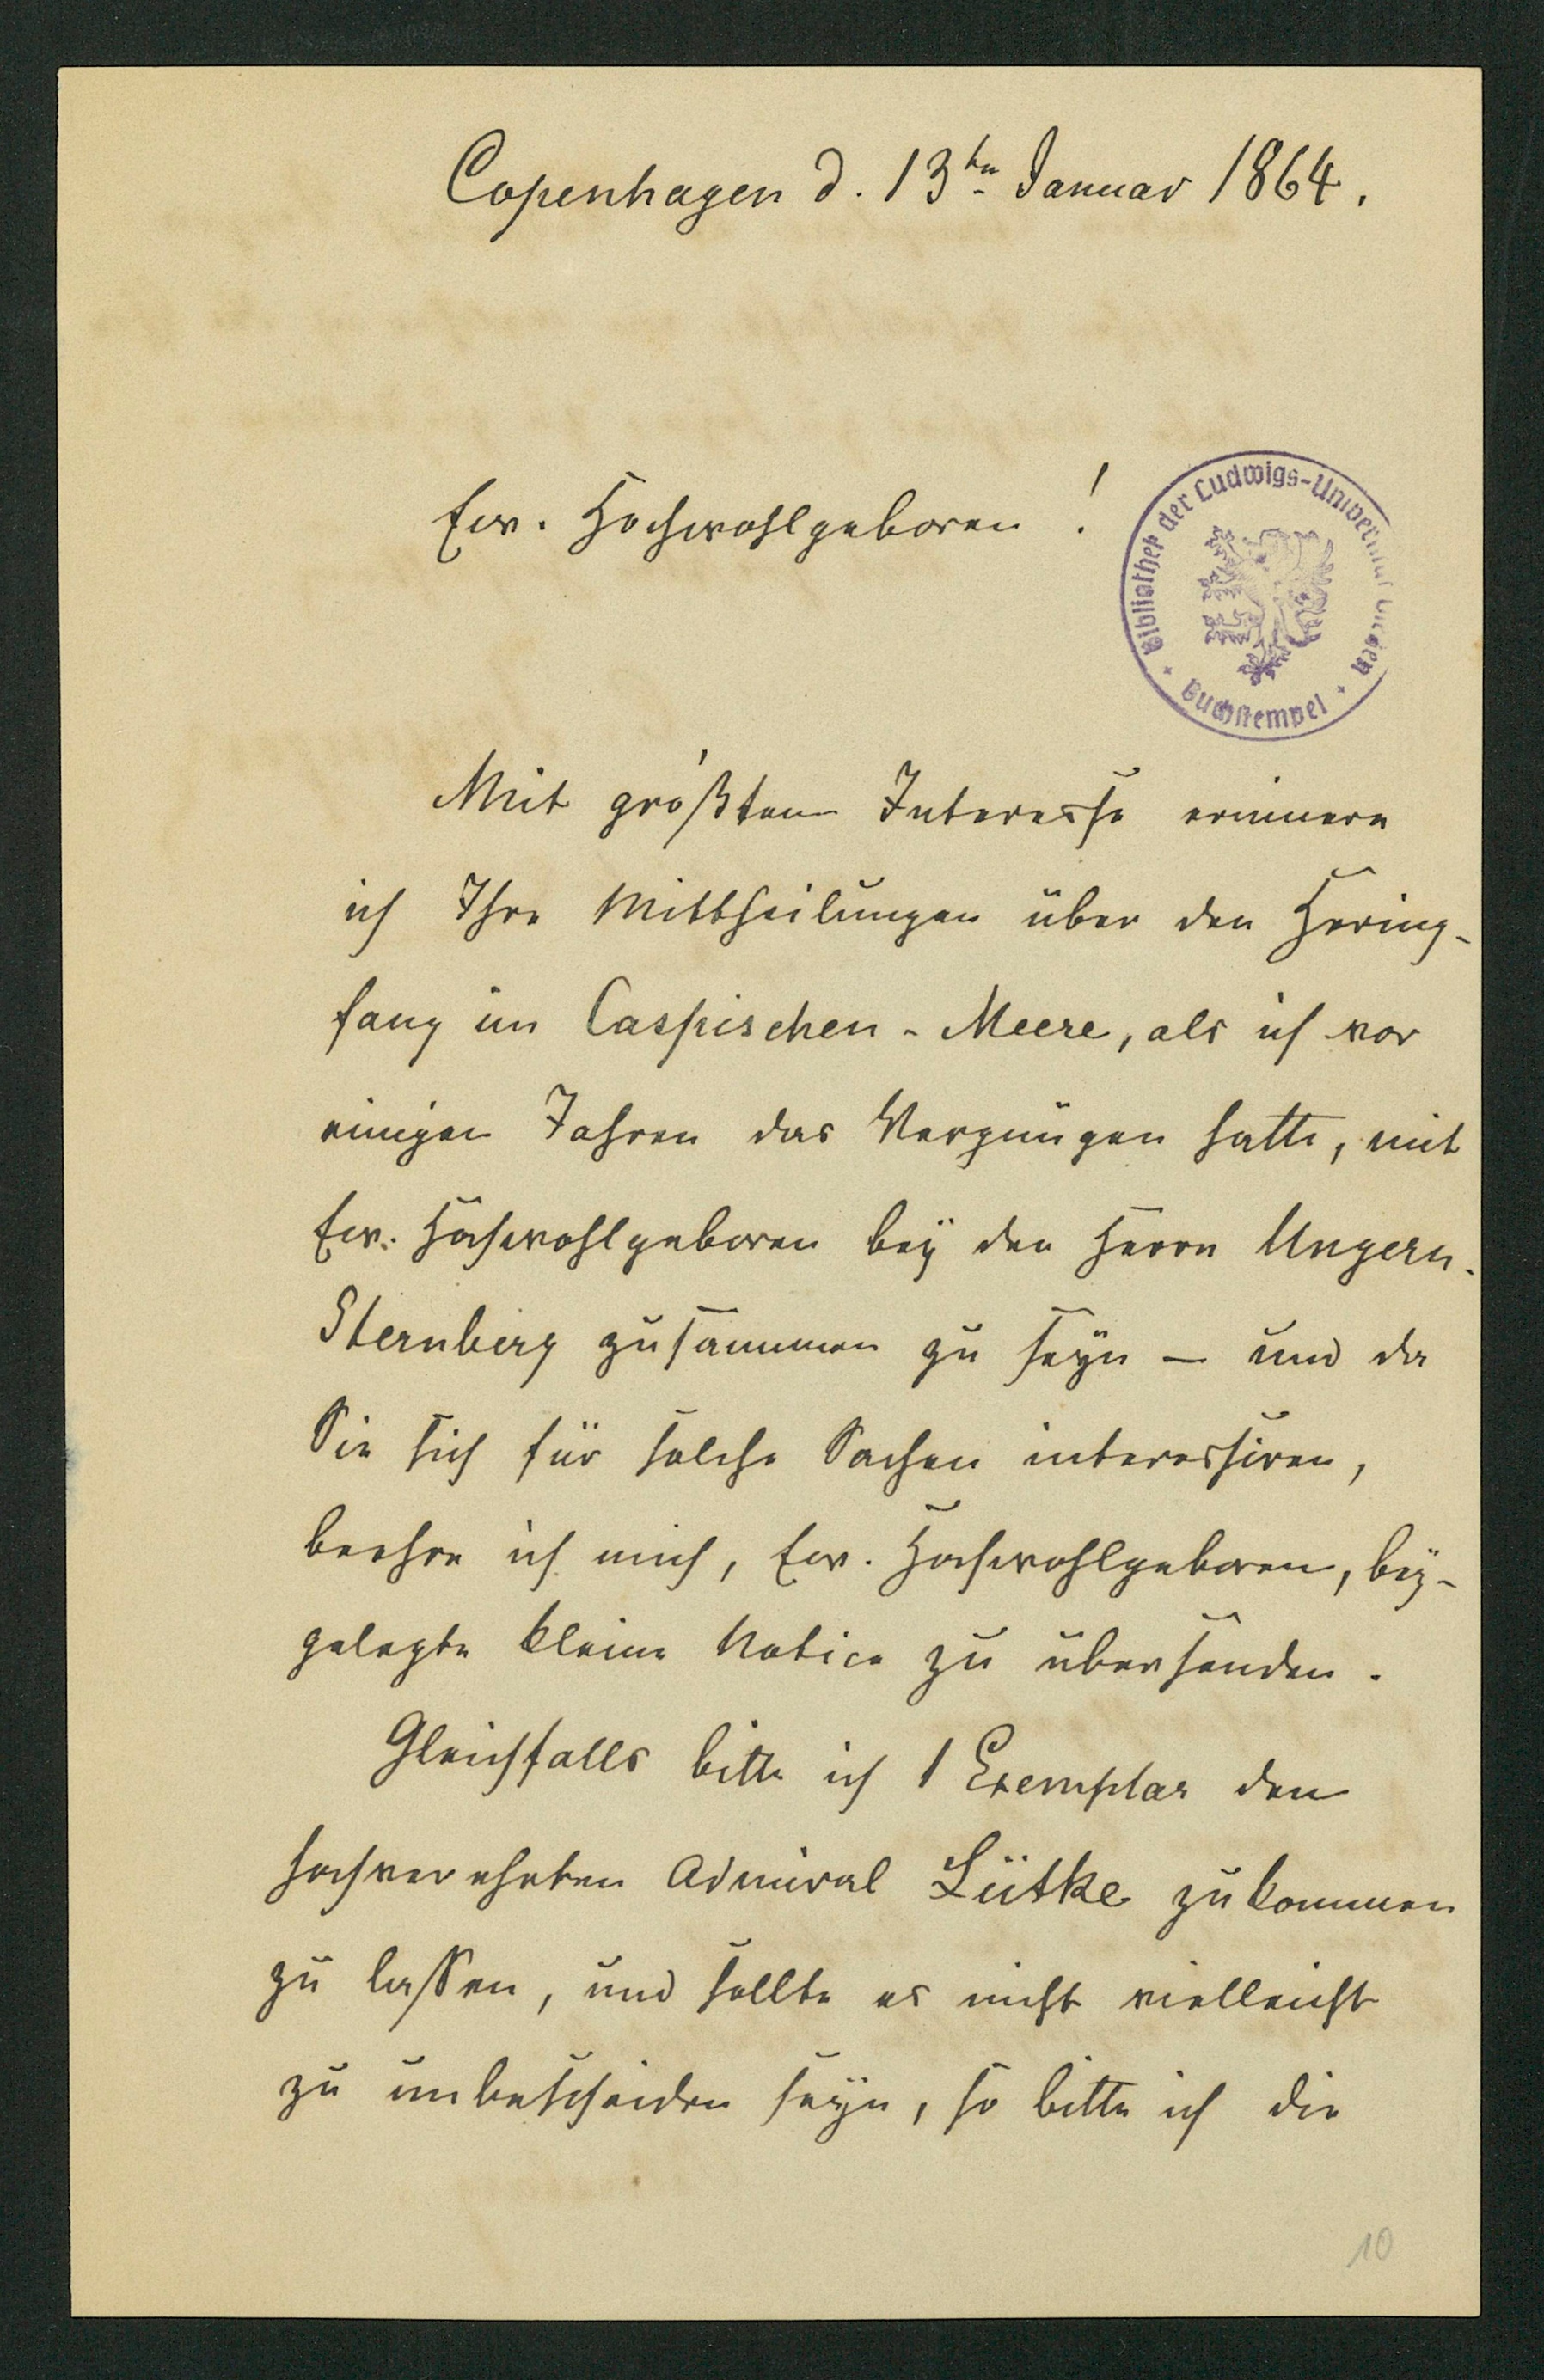 Copenhagen d. 13ten Januar 1864.
Ew. Hochwohlgeboren!
Bibliothek der Ludwigs-Universität Giessen
Buchstempel
Mit größtem Interesse erinnere
ich Ihre Mittheilungen über den Hering-
fang im Caspischen-Meere, als ich vor
einigen Jahren das Vergnügen hatte, mit
Ew. Hochwohlgeboren bey den Herrn Ungern-
Sternberg zusammen zu seyn – und da
Sie sich für solche Sachen interessiren,
beehre ich mich, Ew. Hochwohlgeboren, bey-
gelegte kleine Notice zu übersenden.
Gleichfalls bitte ich 1 Exemplar dem
hochverehrten Admiral Lütke zukommen
zu lassen, und sollte es nicht vielleicht
zu unbescheiden seyn, so bitte ich die
10